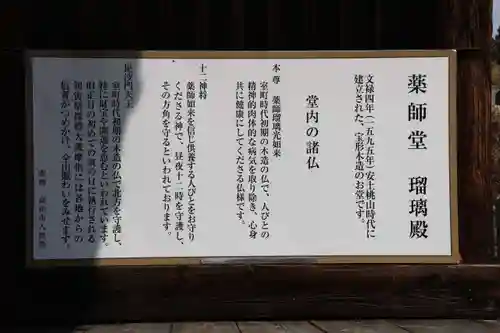 薬師堂 瑠璃殿
文禄四年(一五九五年)安土桃山時代に
建立された、宝形木造のお堂です。
堂内の諸仏
本尊 薬師瑠璃光如来
室町時代初期の木造の仏で、人びとの
精神的肉体的な病気を取り除き、心身
共に健康にしてくださる仏様です。
十二神将
薬師如来を信じ供養する人びとをお守り
くださる神で、昼夜十二時を守護し、
その方角を守るといわれております。
毘沙門天王
室町時代初期の木造の仏で北方を守護し、
特に財宝と開運を恵むといわれています。
旧正月の初めての寅の日に執行される
初寅祭
には各地からの
信者がつめかけ、今日賑わいをみせます。